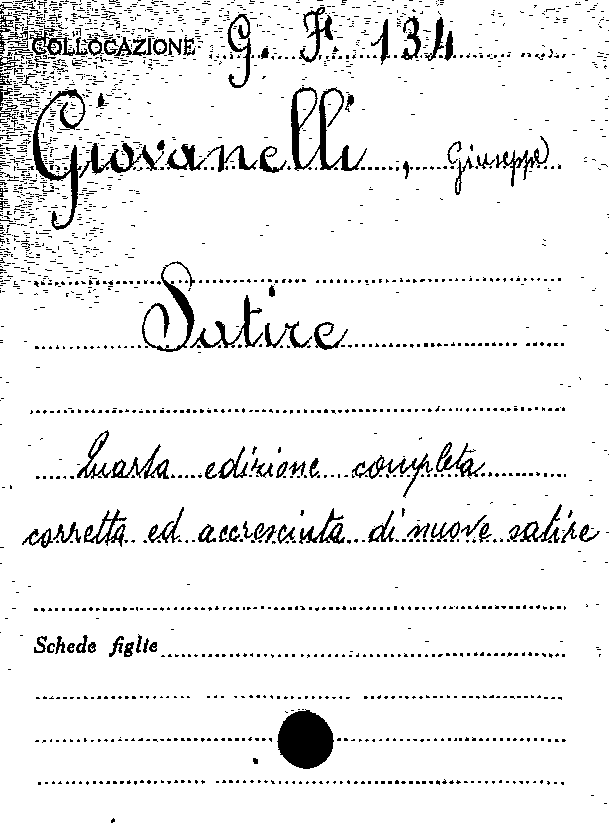 COLLOCAZIONE G. F. 134
Giovanelli, Giuseppe
Satire
Quarta edizione completa
corretta ed accresciuta di nuove satire
Schede figlie